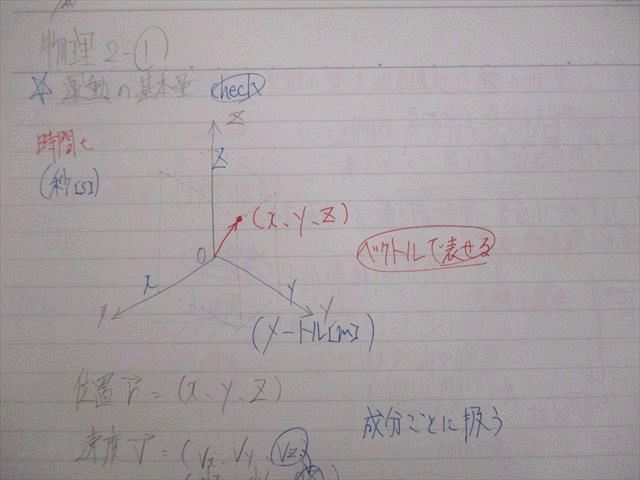 物理 2-①
☆ 運動の基本量 check
Z
時間 t
Z
(秒[s])
(x、y、z)
O
ベクトルで表せる
x
y
x
y
(メートル[m])
位置 r = (x、y、z)
成分ごとに扱う
速度 v = (Vx、Vy、Vz)